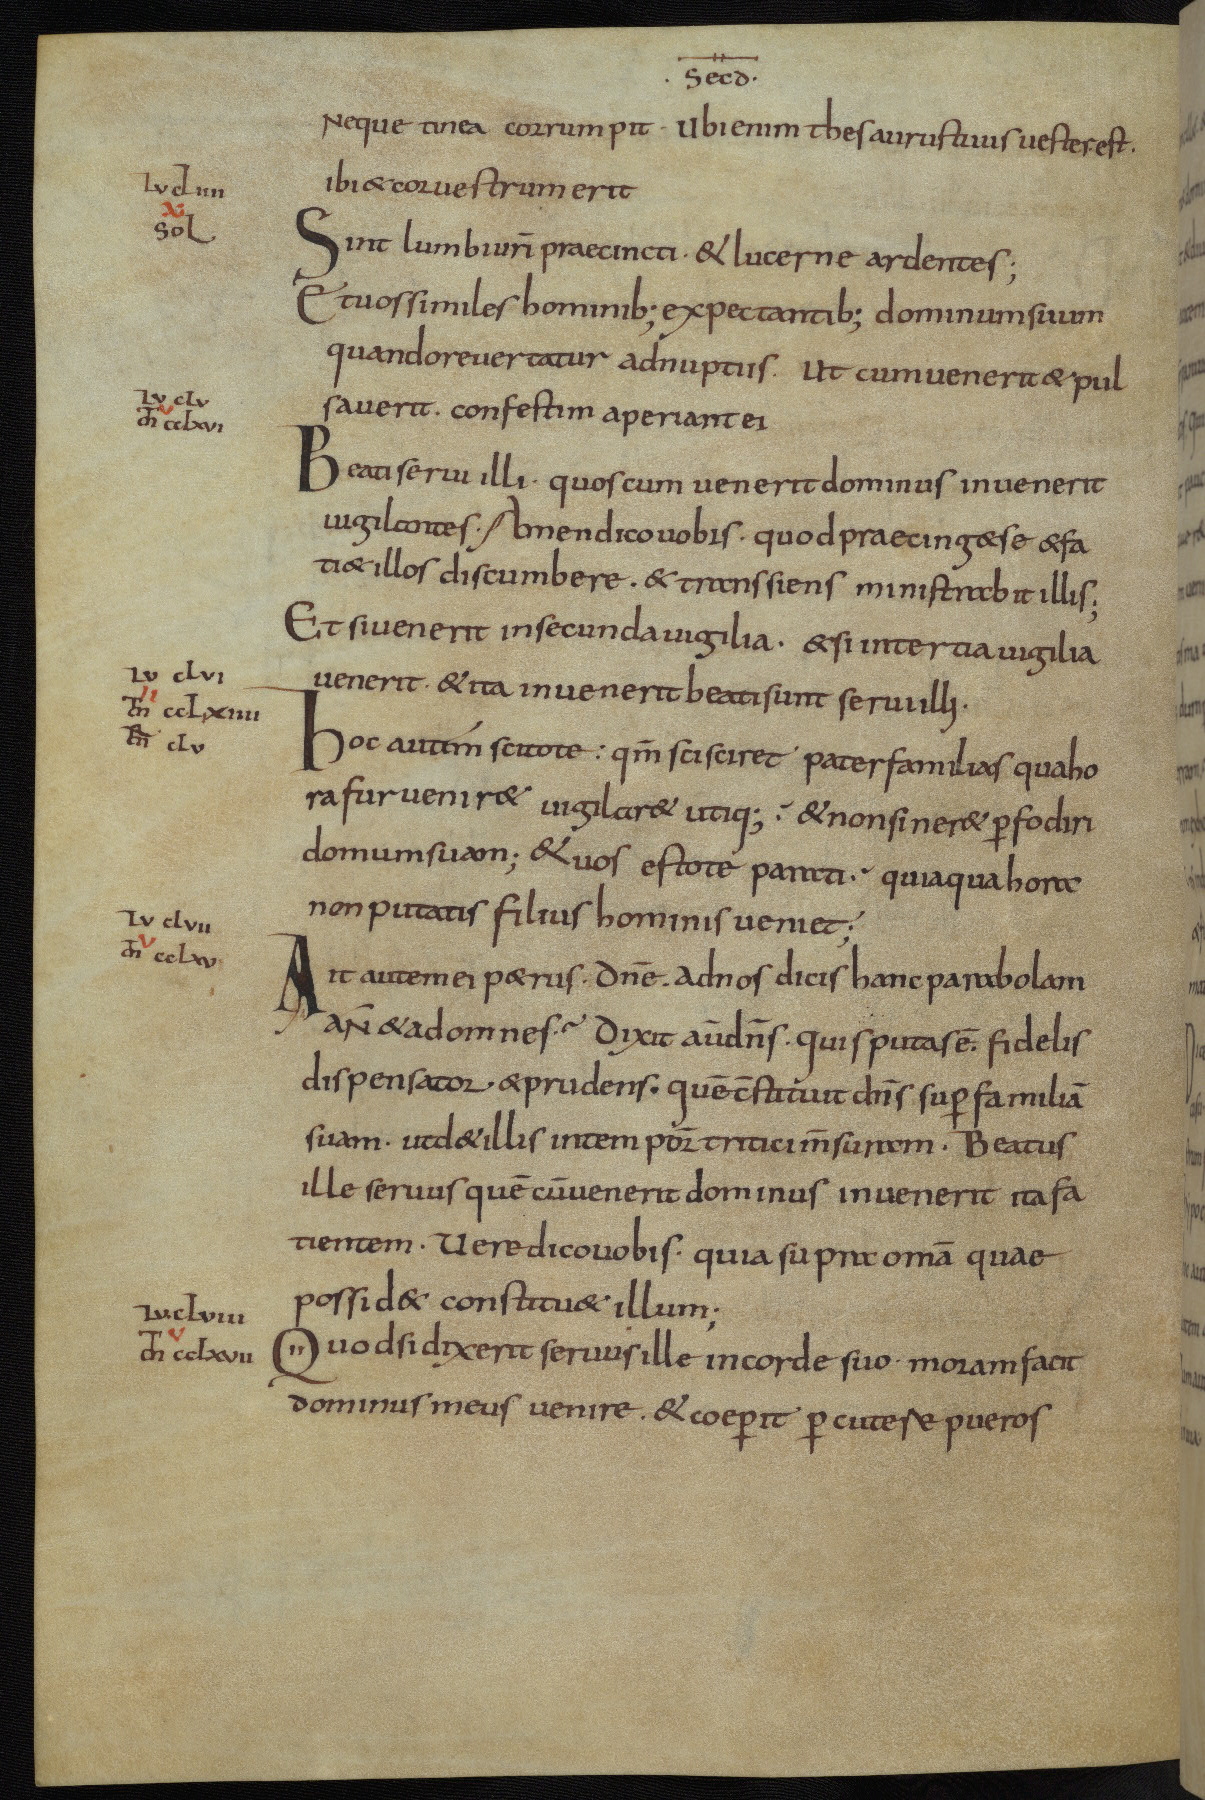 · Secd ·
Neque tinea corrumpit · Ubi enim thesaurus tuus vester est ·
ibi & cor vestrum erit
Lu cLiiii
x
SoL
Sint lumbi uri praecincti · & lucerne ardentes ;
Et vos similes hominib; expectantib; dominum suum
quando revertatur ad nuptus · Ut cum venerit & pul
Lu cLv
v
cchxvi
saverit · confestim aperiant ei
Beati servi illi · quos cum venerit dominus invenerit
vigilantes · Amen dico vobis · quod praecing& se & fa
ti& illos discumbere · & transsiens ministrabit illis ;
Et si venerit in secunda vigilia · & si in tertia vigilia
Lu cLvi
ii
ccLxiiii
cLv
venerit · & ita invenerit beati sunt servi illi ·
hoc autem scitote : qm̄ si sciret paterfamilias qua ho
ra fur venir& vigilar& utiq; : & non siner& p̄fodiri
domum suam ; & vos estote parati · quia qua hora
non putatis filius hominis veniet ;
Lu cLvii
v
ccLxv
Ait autem ei p&rus · Dn̄e · ad nos dicis hanc parabolam
AN̄ & ad omnes · Dixit aūdn̄s · quis putas ē · fidelis
dispensator · & prudens · quē c̄stituit dn̄s sup̄ familiā
suam · ut d& illis in tempor̄ tritici m̄suram · Beatus
ille servus quē cū venerit dominus invenerit ita fa
tientem · Vere dico vobis · quia supra omā quae
possid& constitu& illum ;
Lu cLviii
v
ccLxvii
Quod si dixerit servus ille in corde suo · moram facit
dominus meus venire · & coep̄it p̄cutere pueros